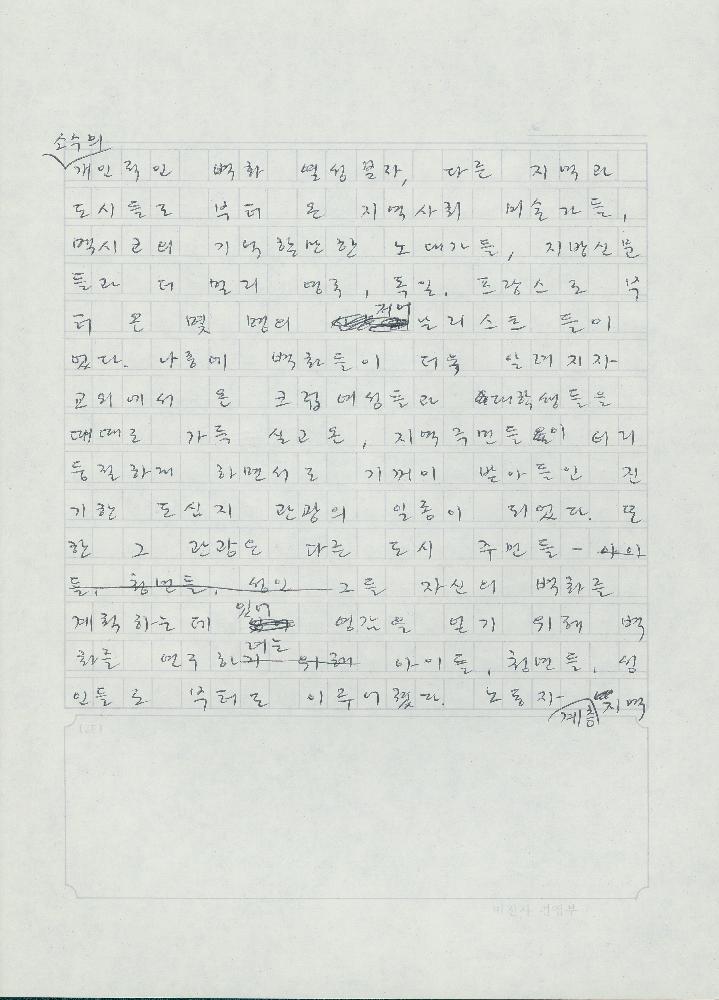 소수의
개인적인 벽화 열성분자, 다른 지역과
도시들로 부터 온 지역사회 미술가들,
멕시코의 기억할만한 노대가들, 지방신문
들과 더 멀리 영국, 독일, 프랑스로 부
터 온 몇 명의 저어널리스트 들이
었다. 나중에 벽화들이 더욱 알려지자
교외에서 온 여성들과 대학생들을
때때로 가득 싣고 온, 지역주민들이 터리
둥절하게 하면서도 기꺼이 받아들인 진
기한 도심지 관광의 일종이 되었다. 또
한 그 관광은 다른 도시 주민들 - 아이
들, 청년들, 성인 그들 자신의 벽화를
계획하는데 있어 영감을 얻기 위해 벽
화를 연구하려는 아이들, 청년들, 성
인들로 부터도 이루어졌다. 노동자
계층 지역